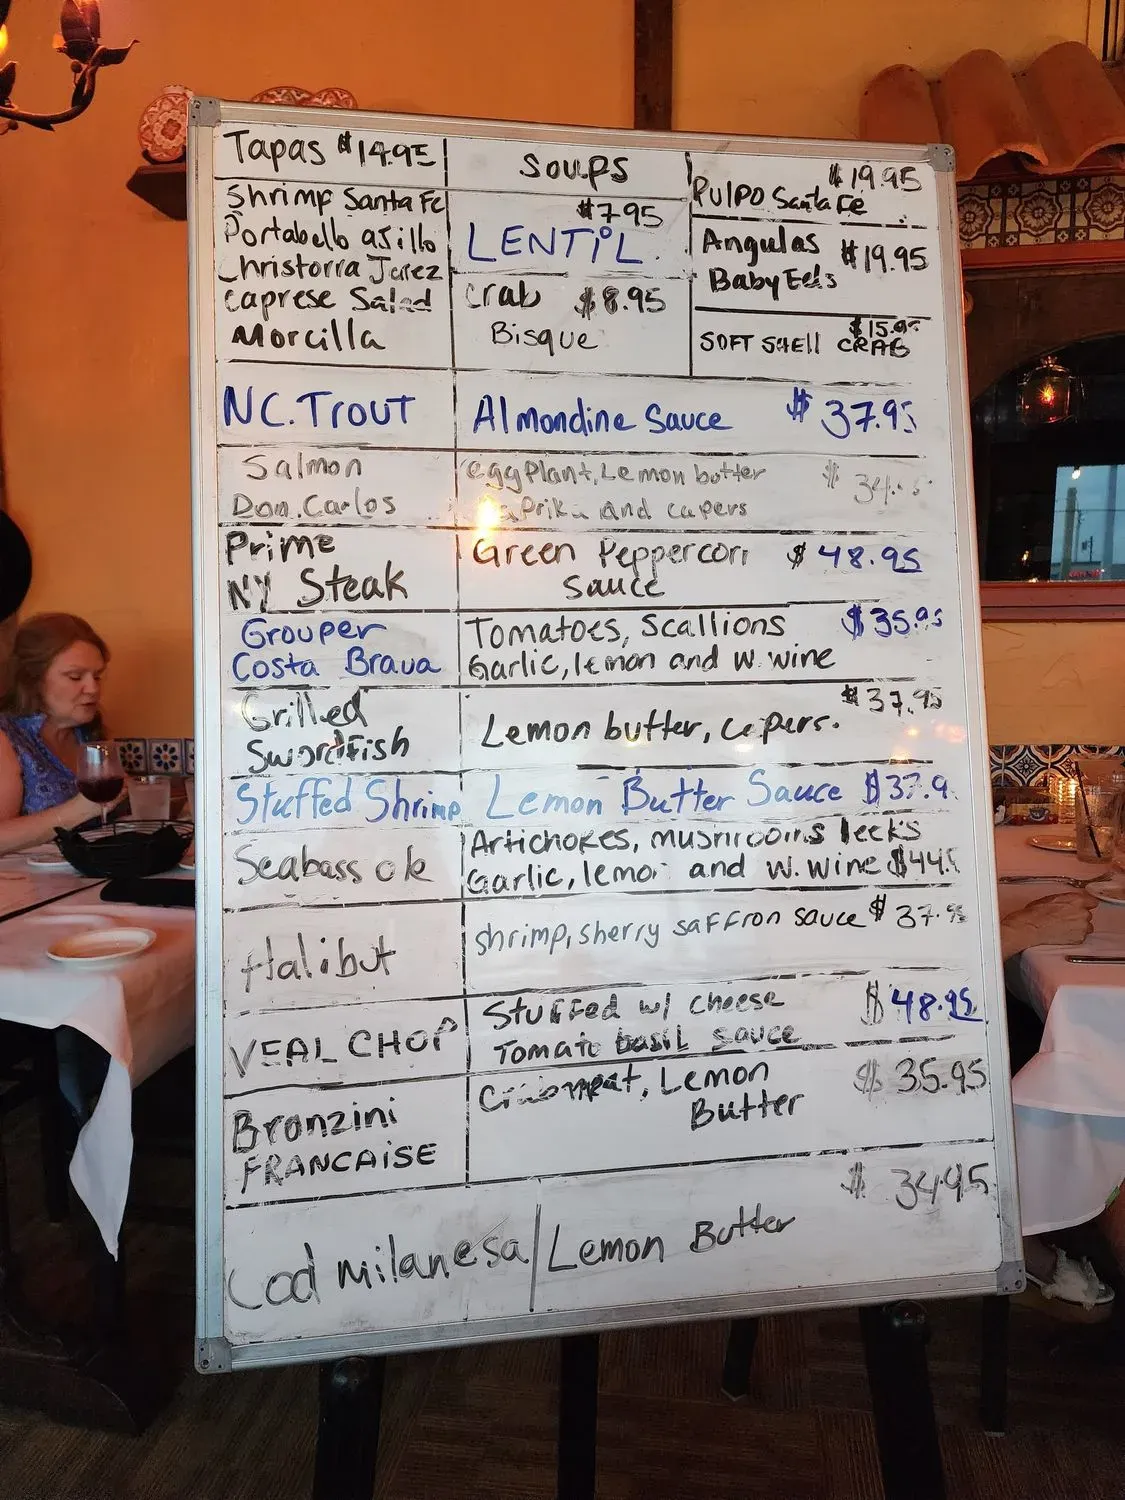 Tapas $14.95
Shrimp Santa Fe
Portabello ajillo
Christorra Jerez
Caprese Salad
Morcilla
Soups
$7.95
LENTIL
Crab $8.95
Bisque
$19.95
PULPO Santa Fe
Angulas $19.95
Baby Eels
$15.95
SOFT SHELL CRAB
NC. TROUT Almondine Sauce $37.95
Salmon
Don. Carlos
eggplant, Lemon butter
Paprika and capers
Prime
NY Steak
Green Peppercorn $48.95
Sauce
Grouper
Costa Brava
Tomatoes, Scallions $35.95
Garlic, lemon and W. wine
Grilled
Swordfish
$37.95
Lemon butter, capers.
Stuffed Shrimp Lemon Butter Sauce $37.9
Seabass
Artichokes, mushrooms leeks
Garlic, lemon and W. wine $44.
Halibut
shrimp, sherry saffron sauce $37.95
VEAL CHOP
Stuffed w/ cheese $48.95
Tomato basil sauce
Bronzini
FRANCAISE
Crabmeat, Lemon $35.95
Butter
$34.95
Cod milanesa / Lemon Butter